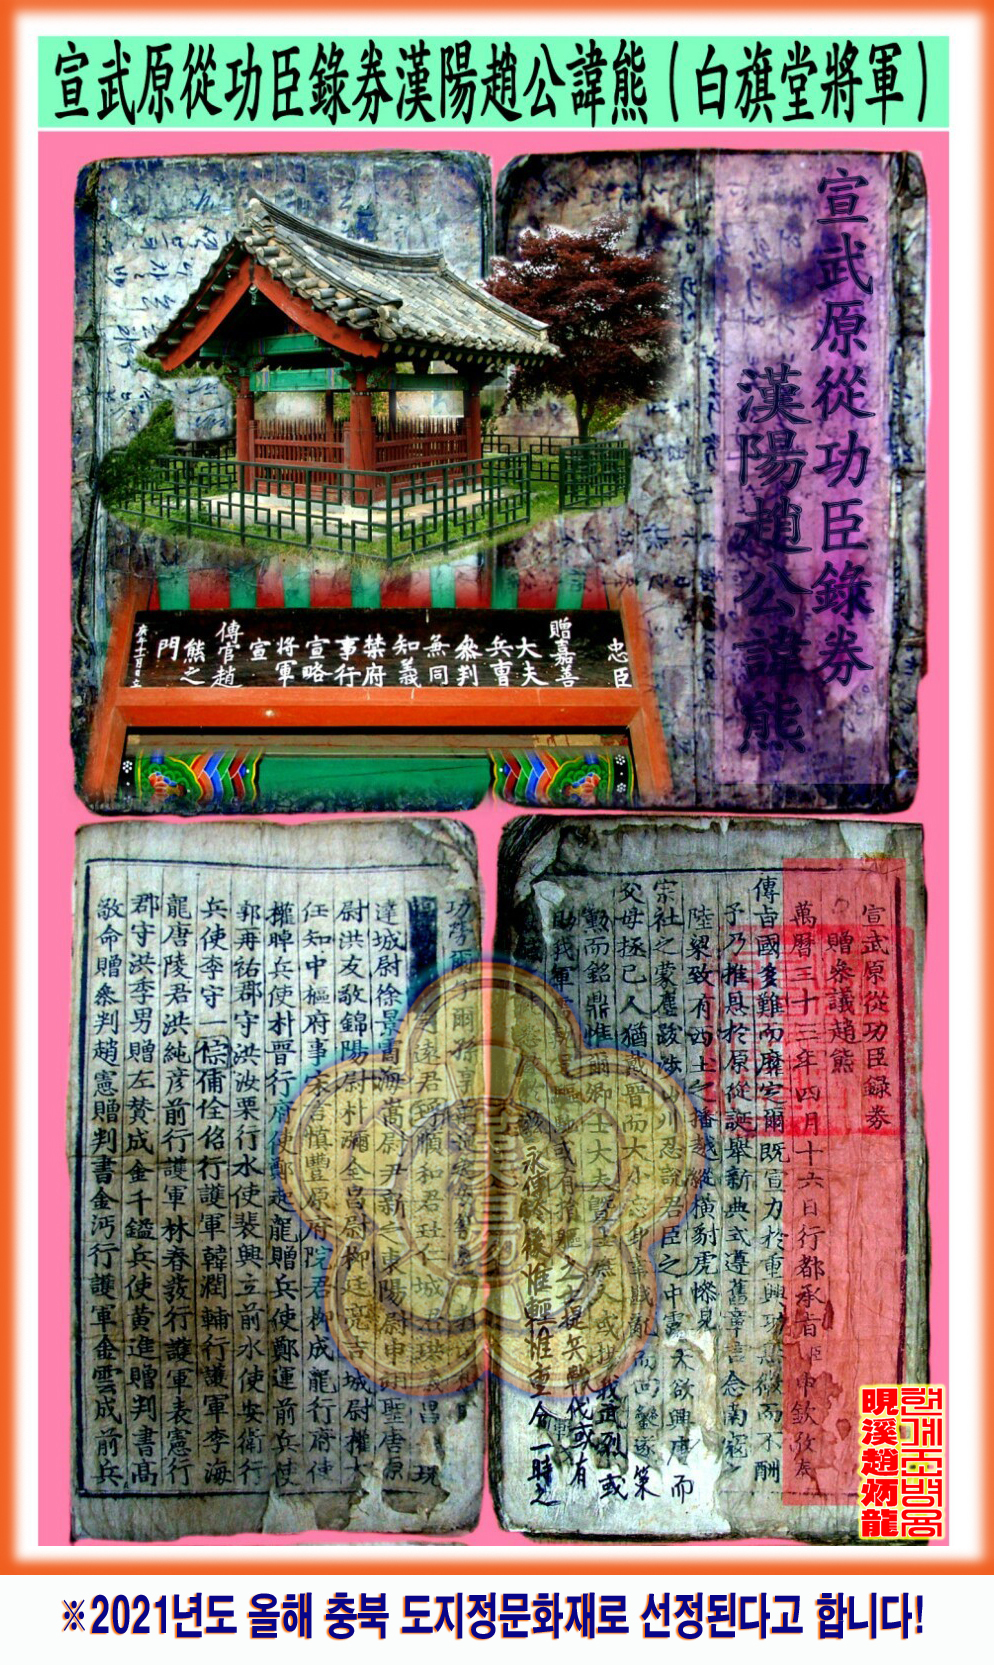 宣武原從功臣錄券漢陽趙公諱熊(白旗堂將軍)
宣武原從功臣錄券
漢陽趙公諱熊
忠臣
贈嘉善
大夫
兵曹
參判
兼同
知義
禁府
事行
宣略
將軍
宣
傳官趙
熊之
門
宣武原從功臣錄券
贈參議趙熊
萬曆三十三年四月十六日行都承旨臣申欽敬奉
傳旨國多難而靡定爾旣宣力於重興功無微而不酬
予乃推恩於原從誕擧新典式遵舊章言念南寇
陸梁致有西土之播越縱橫豺虎慘見
宗社之蒙塵跋涉山川忍說君臣之中露天欲興唐而
父母拯已人猶戴晉而大小忘
勳而銘鼎惟爾卿士大夫曁
永傳於後惟輕惟重合一時之
達城尉徐景霌海嵩尉尹新之東陽尉申翊聖唐原
尉洪友敬錦陽尉朴瀰全昌尉柳廷亮吉城尉權大
任知中樞府事宋言愼豐原府院君柳成龍行府使
權晫兵使朴晋行府使鄭起龍贈兵使鄭運前兵使
郭再祐郡守洪汝栗行水使裵興立前水使安衛行
兵使李守一倧俌佺佲行護軍韓潤輔行護軍李海
龍唐陵君洪純彦前行護軍林春發行護軍表憲行
郡守洪季男贈左贊成金千鎰兵使黃進贈判書高
敬命贈參判趙憲贈判書金沔行護軍金雲成前兵
晛溪趙炳龍
현계조병용
※2021년도 올해 충북 도지정문화재로 선정된다고 합니다!